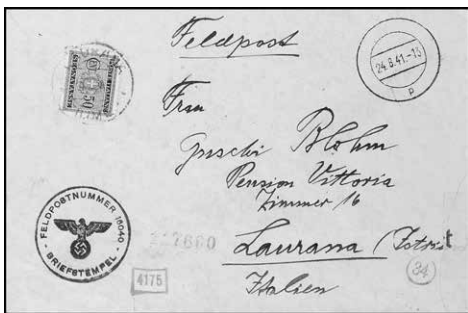 Feldpost
24.8.41.-13
P
50
Frau
Guschi Blohm
Pension Vittoria
Zimmer 16
Laurana
Italien
FELDPOSTNUMMER 16040
BRIEFSTEMPEL
4175
34